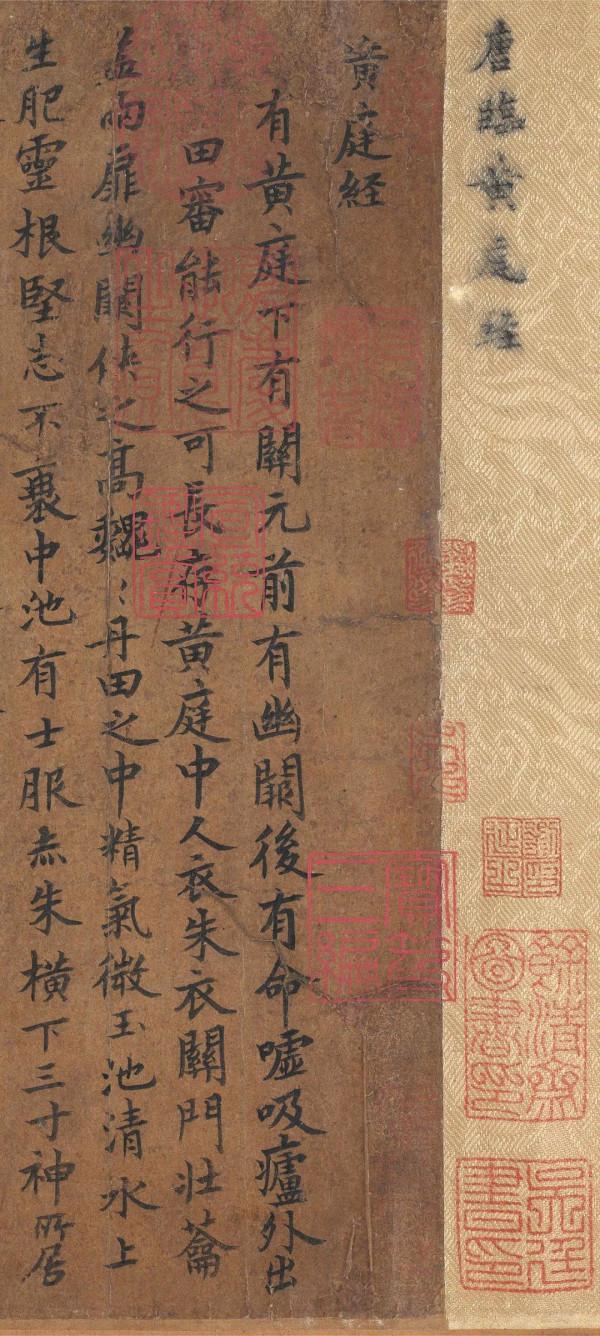 唐臨黄庭経
黄庭経
有黄庭下有關元前有幽闕後有命嘘吸廬外出
田審能行之可長存黄庭中人衣朱衣關門壮蘥
盖兩扉幽闕侠之高巍〻丹田之中精氣微玉池清水上
生肥靈根堅志不衰中池有士服赤朱橫下三寸神所居
寶笈三編
餘清齋圖書印